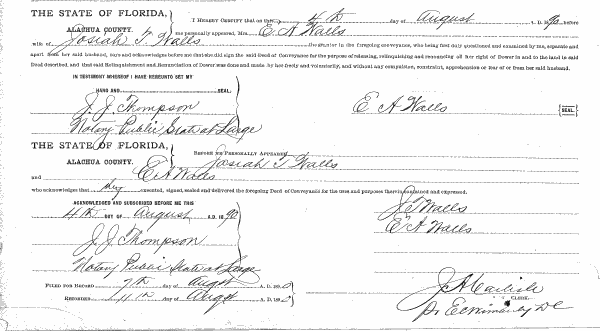 THE STATE OF FLORIDA,
ALACHUA COUNTY.
I HEREBY CERTIFY that on this 4th day of August A. D. 90 before
me personally appeared, Mrs. E A Walls
wife of Josiah T. Walls the grantor in the foregoing conveyance, who being first duly questioned and examined by me, separate and
apart from her said husband, says and acknowledges before me that she did sign the said Deed of Conveyance for the purpose of releasing, relinquishing and renouncing all her right of Dower in and to the land in said
Deed described, and that said Relinquishment and Renunciation of Dower was done and made by her freely and voluntarily, and without any compulsion, constraint, apprehension or fear of or from her said husband.
IN TESTIMONY WHEREOF I HAVE HEREUNTO SET MY
HAND AND SEAL,
J. J. Thompson
Notary Public State at Large
E A Walls
SEAL
THE STATE OF FLORIDA,
ALACHUA COUNTY.
BEFORE ME PERSONALLY APPEARED
Josiah T Walls
and E A Walls
who acknowledges that they executed, signed, sealed and delivered the foregoing Deed of Conveyance for the uses and purposes therein contained and expressed.
ACKNOWLEDGED AND SUBSCRIBED BEFORE ME THIS
4th DAY OF August A. D. 1890
J. J. Thompson
Notary Public State at Large
J T Walls
E A Walls
FILED FOR RECORD 7th day of August A. D. 1890
RECORDED 11th day of Augst A. D. 1890
J A Carlisle
CLERK.